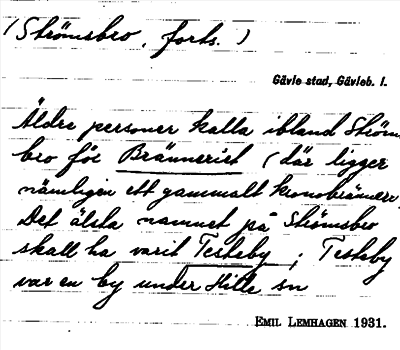 (Strömsbro, forts.)
Gävle stad, Gävleb. l.
Äldre personer kalla ibland Ströms
bro för Bränneriet (där ligger
nämligen ett gammalt kronobränneri
Det äldsta namnet på Strömsbro
skall ha varit Testeby; Testeby
var en by under Hille sn
EMIL LEMHAGEN 1931.